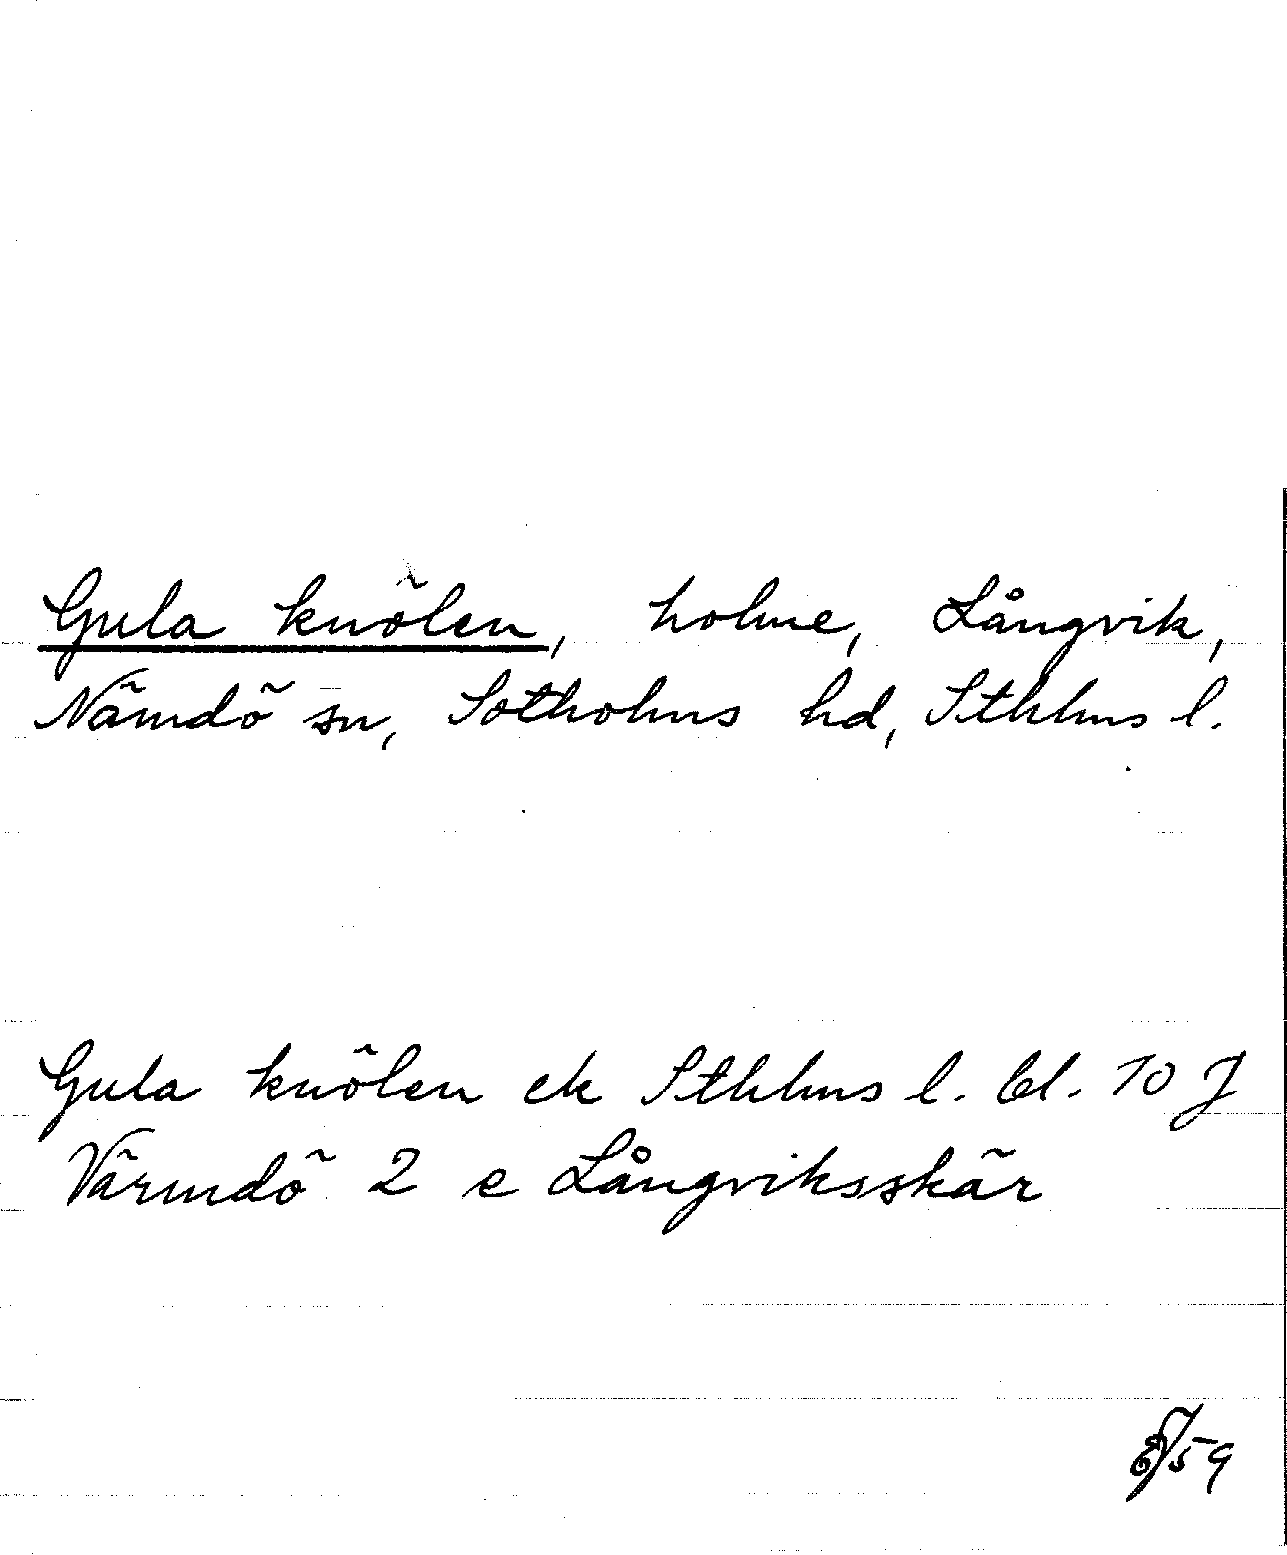 Gula knölen, holme, Långvik,
Nämdö sn, Sotholms hd, Sthlms l.
Gula knölen ek Sthlms l. bl. 10 J
Värmdö 2 e Långviksskär
/59